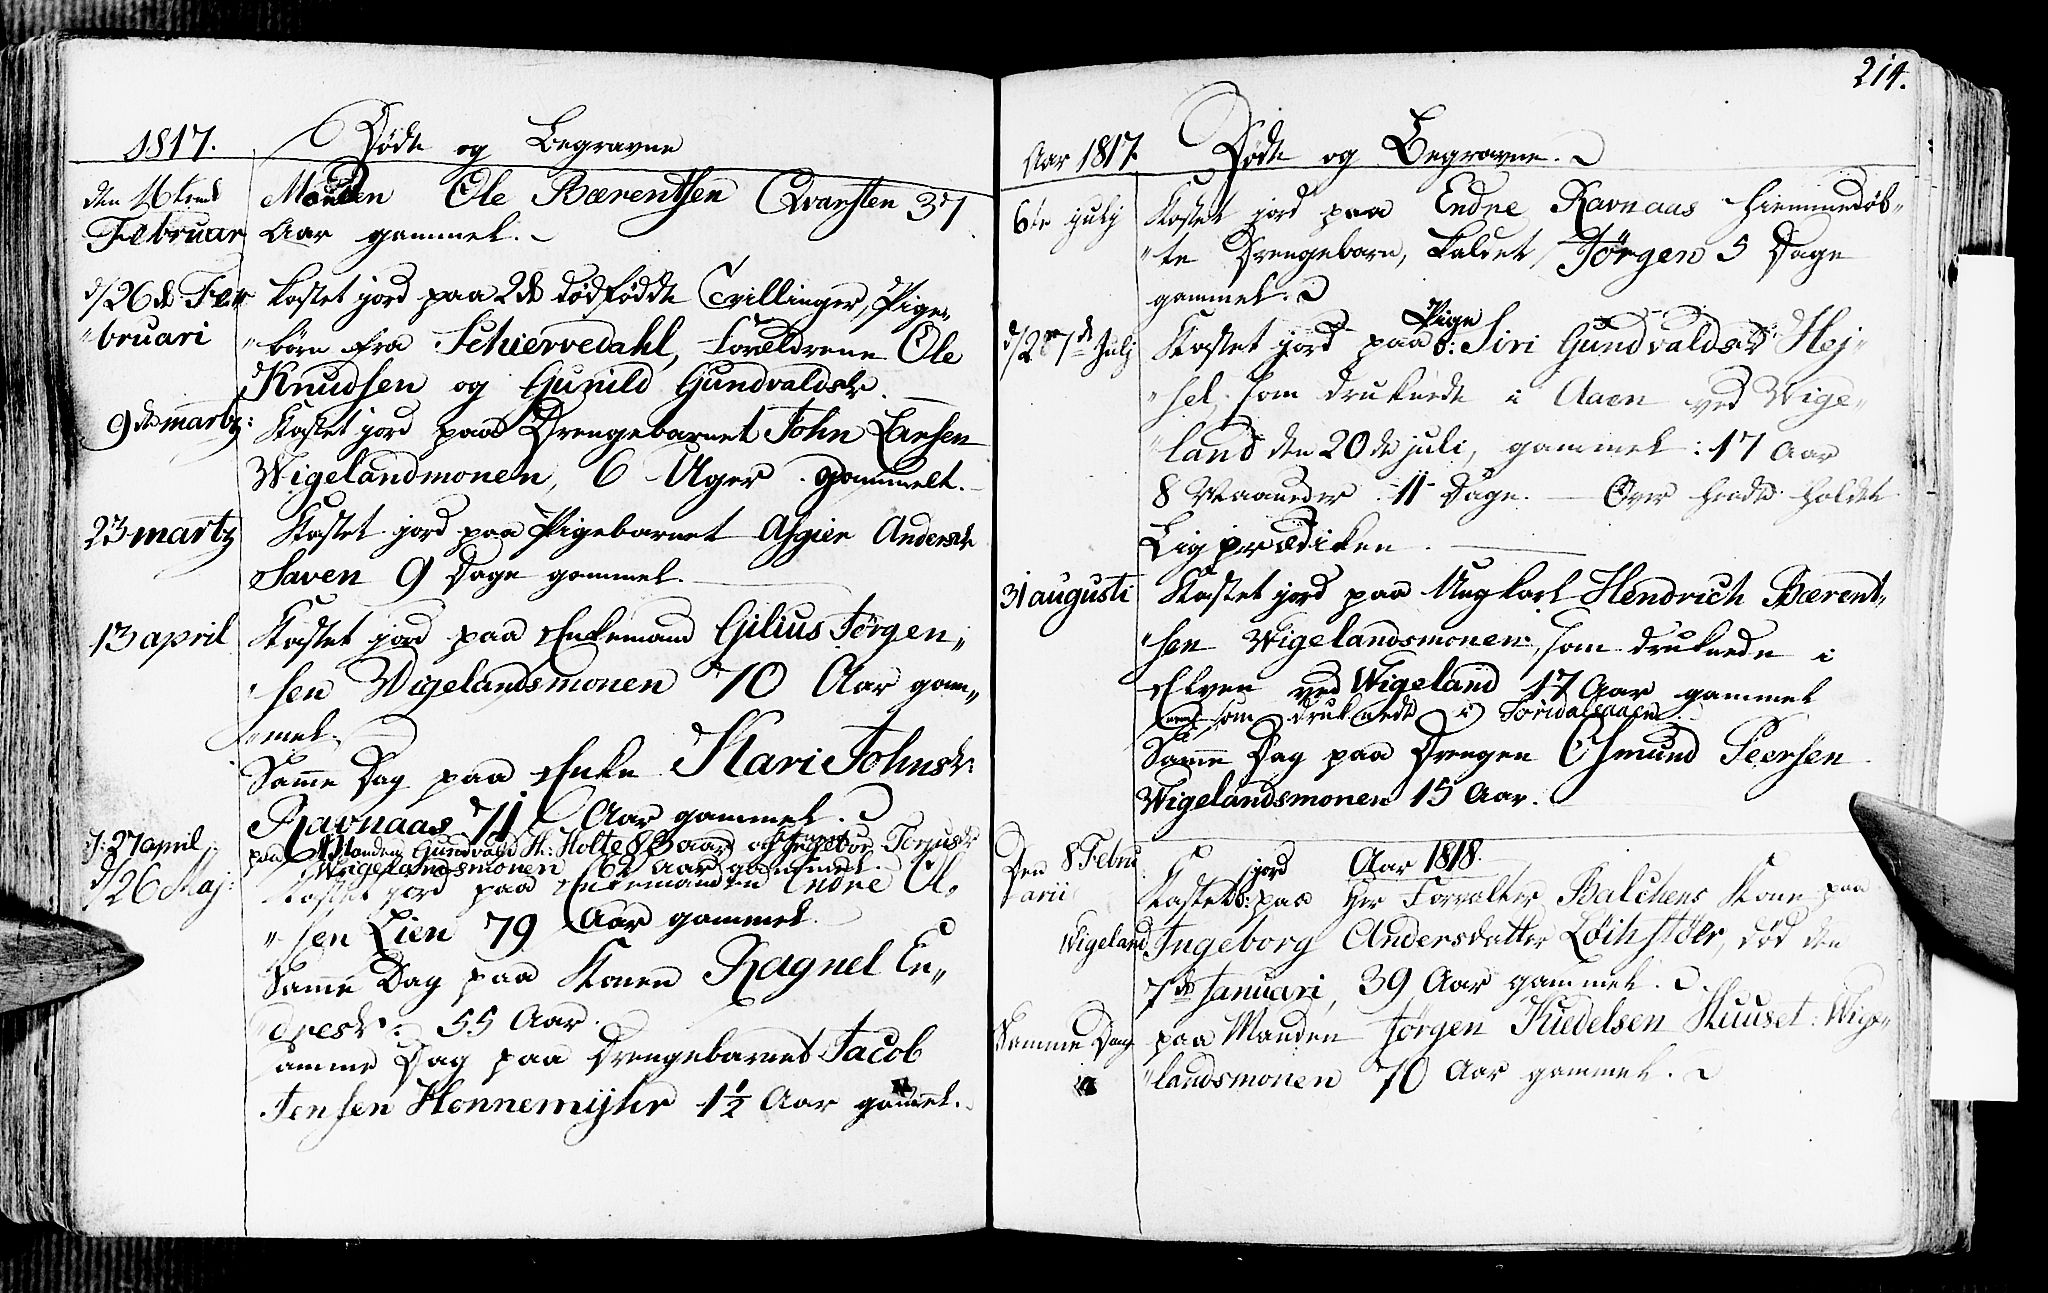 1817. Døde og Begravne
den 16tend Manden Ole Bærentsen Qvarsten 37
Februar Aar gammel.
d/26de Fe„ kastet jord paa 2de dødføddte Tvillinger, Pige„
„bruari „börn fra Schiervedahl, Forældrene Ole
Knudsen og Gunild Gundvaldsdr.
9de martz: Kastet jord paa Drengebarnet John Larsen
Wigelandmonen, 6 Uger gammelt.
23 martz Kastet jord paa Pigebarnet Asgier Andersdr
Saven 9 Dage gammel.
13 april Kastet jord paa Enkemand Gilius Jørgen„
„sen Wigelandsmonen 70 Aar gam„
„mel.
Samme Dag paa Enke Kari Johnsdr:
Ravnaas 71 Aar gammel.
d: 27 april paa Manden Gundvald H: Holte 83 aar og Ingebor Torjusdr
Wigelandsmonen 62 Aar gammel.
d/26 Maj: Kastet jord paa Enkemanden Endre Ol„
„sen Lien 79 Aar gammel.
Samme Dag paa Konen Ragnel En„
„dresdr: 55 Aar.
Samme Dag paa Drengebarnet Jacob
Jensen Hennemyhr 1½ Aar gammel.
214.
Aar 1817. Døde og Begravne.
6te julij Kastet jord paa Endre Ravnaas hiemmedøb„
„te Drengebarn, kaldet Jörgen 5 Dage
gammel.
d/27de Julj Kastet jord paa Pige Siri Gundvaldsdr Hej„
„sel, som druknede i Aaen ved Wige„
„land den 20de juli, gammel: 17 Aar
8 Maaneder 11 Dage. — Over hende holdte
Ligprædiken.
31 augusti Kastet jord paa Ungkarl Hendrich Bærent„
„sen Wigelandsmonen, som druknede i
Elven ved Wigeland 17 Aar gammel
som druknede i Torridalsaaen
Samme Dag paa Drengen Osmund Peersen
Wigelandsmonen 15 Aar.
Aar 1818.
Den 8 Febru
arii Kastet jord paa Her Forvalter Balchens Kone paa
Wigeland Ingeborg Andersdatter Løihstöer, død den
7de Januari, 39 Aar gammel.
Samme Dag paa Manden Jørgen Kuuset: Wige„
„landsmonen 70 Aar gammel.